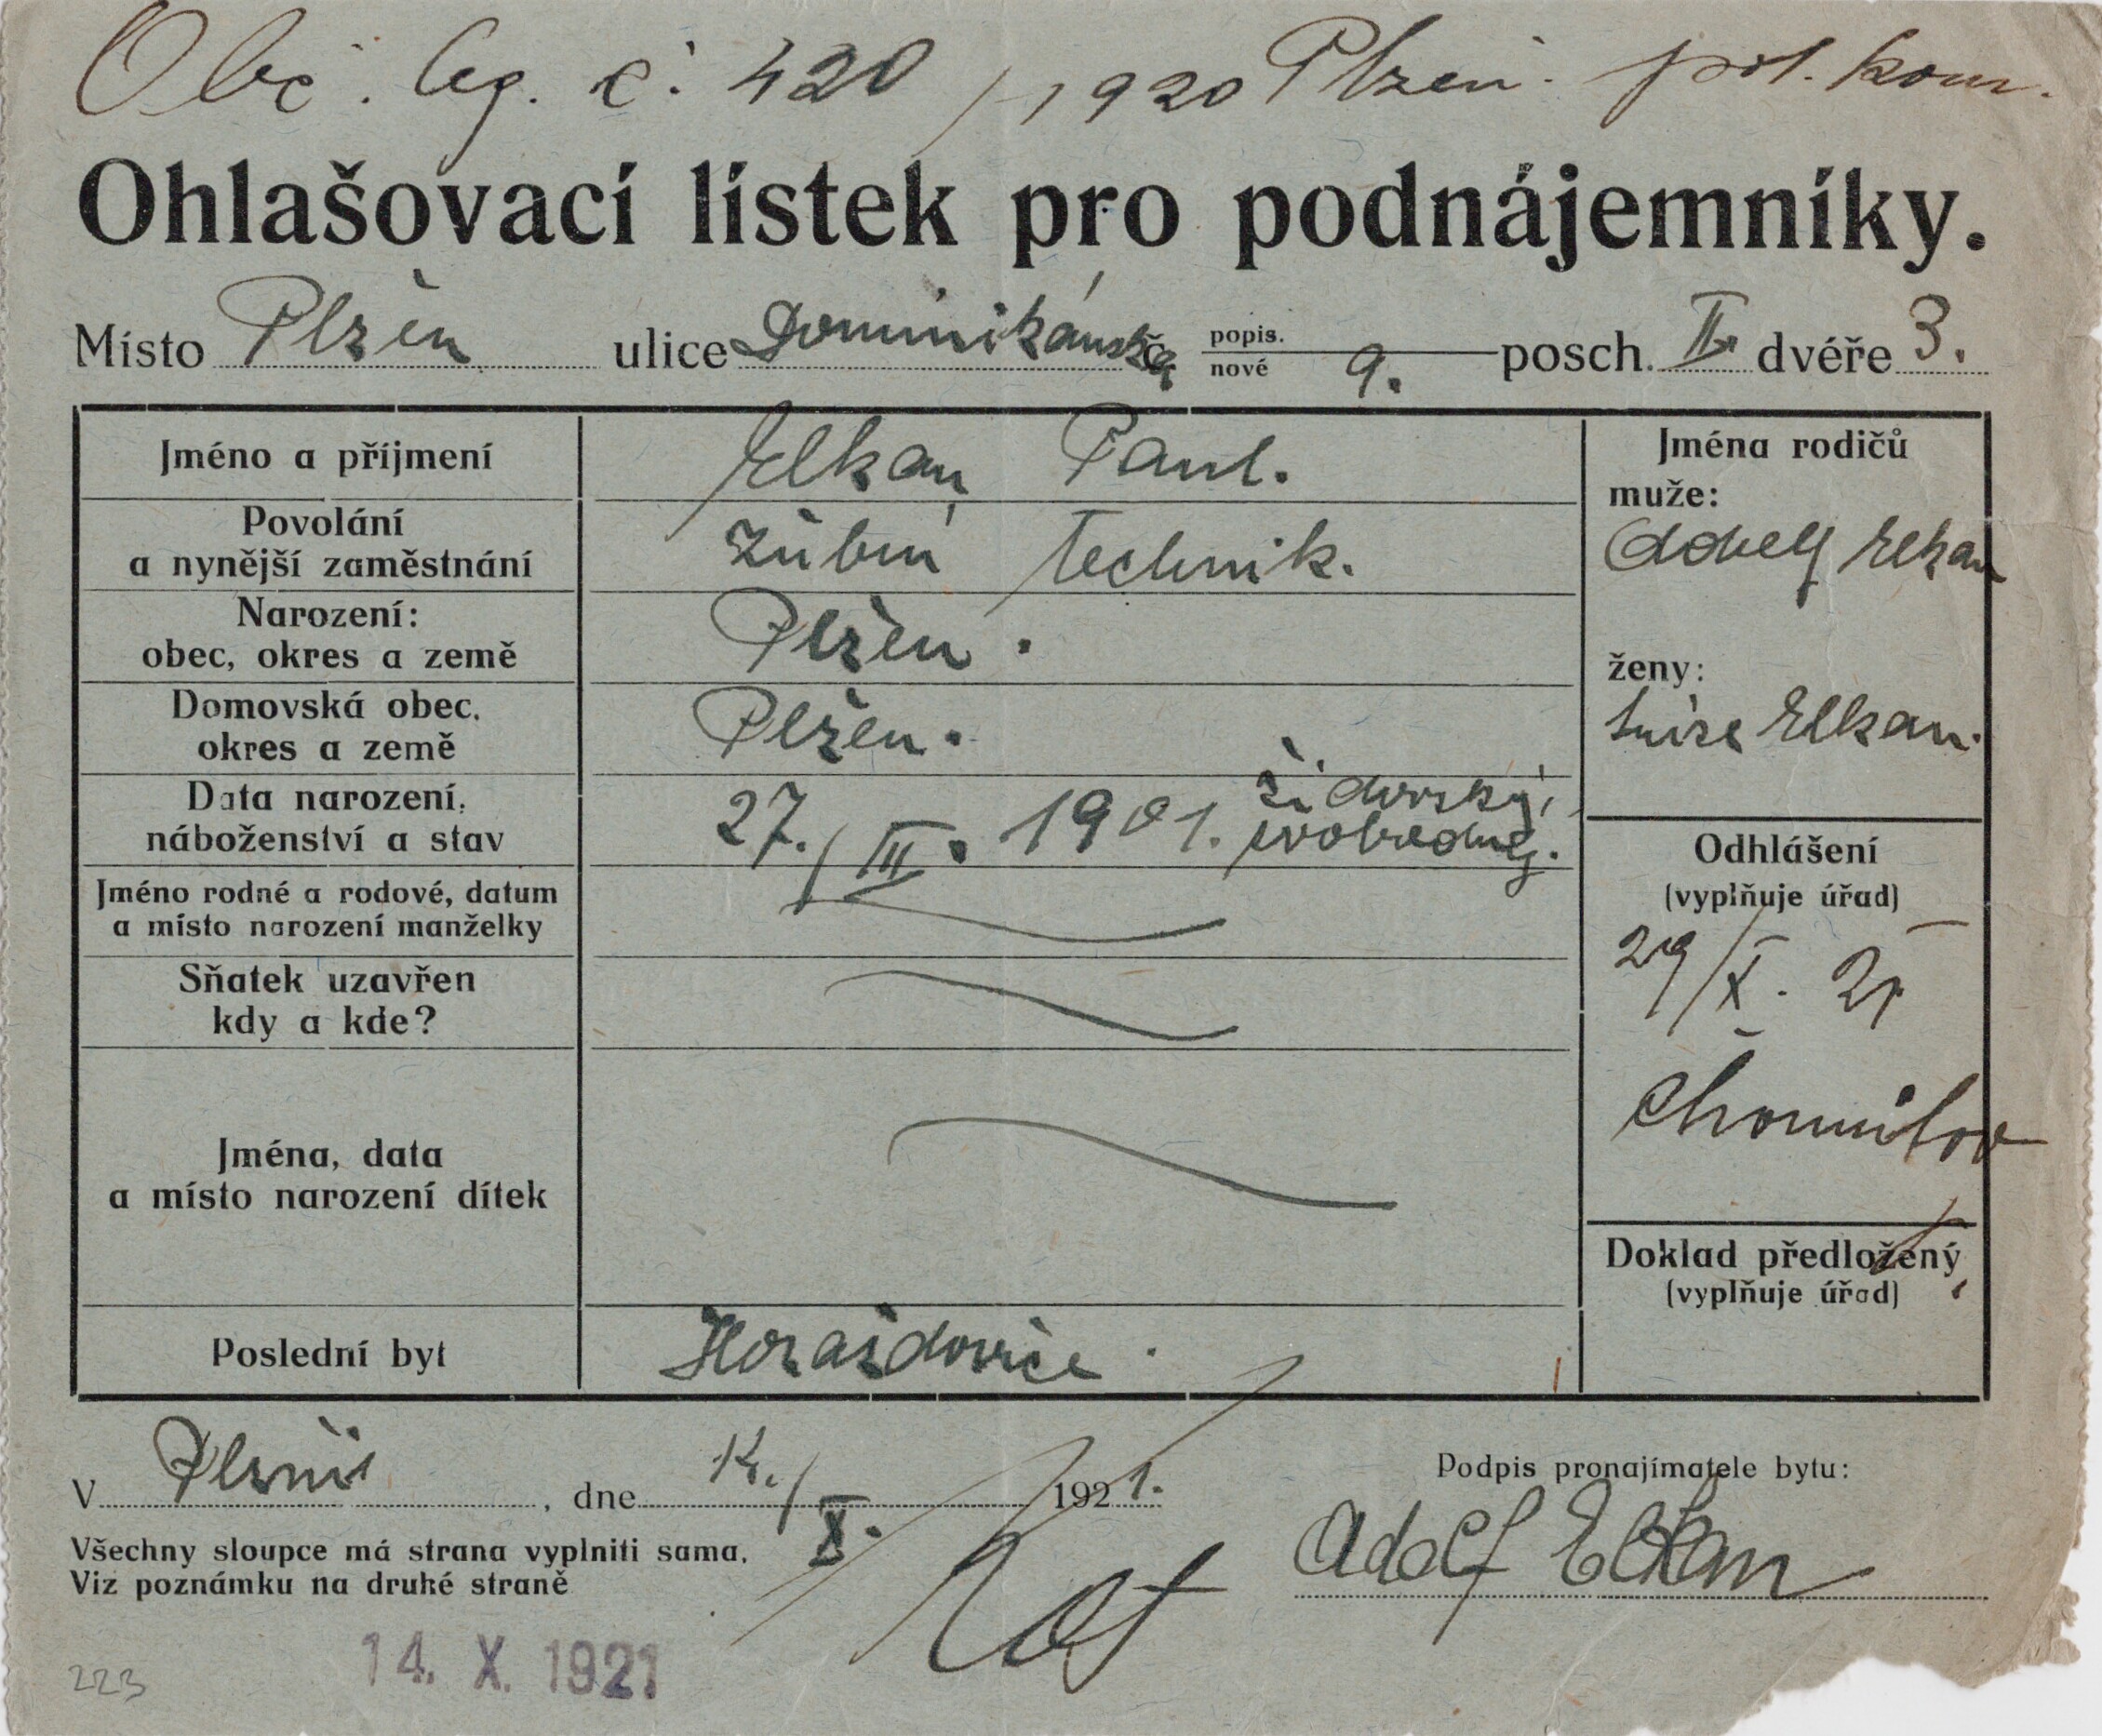 Obč. leg. č. 420/1920 Plzeň. pol. kom.
Ohlašovací lístek pro podnájemníky.
Místo Plzeň ulice Dominikánská č. popis. nové 9. posch. II. dvéře 3.
Jméno a příjmení
Elkan Paul.
Povolání
a nynější zaměstnání
Zubní technik.
Narození:
obec, okres a země
Plzeň.
Domovská obec,
okres a země
Plzeň.
Data narození,
náboženství a stav
27./III. 1901. židovský,
svobodný.
Jméno rodné a rodové, datum
a místo narození manželky
Sňatek uzavřen
kdy a kde?
Jména, data
a místo narození dítek
Poslední byt
Horažďovice.
Jména rodičů
muže:
Adolf Elkan
ženy:
Luise Elkan.
Odhlášení
(vyplňuje úřad)
29/X. 21
Chomutov
Doklad předložený
(vyplňuje úřad)
V Plzni, dne 14./X. 1921.
Podpis pronajímatele bytu:
Adolf Elkan
Všechny sloupce má strana vyplniti sama.
Viz poznámku na druhé straně
14. X. 1921
223